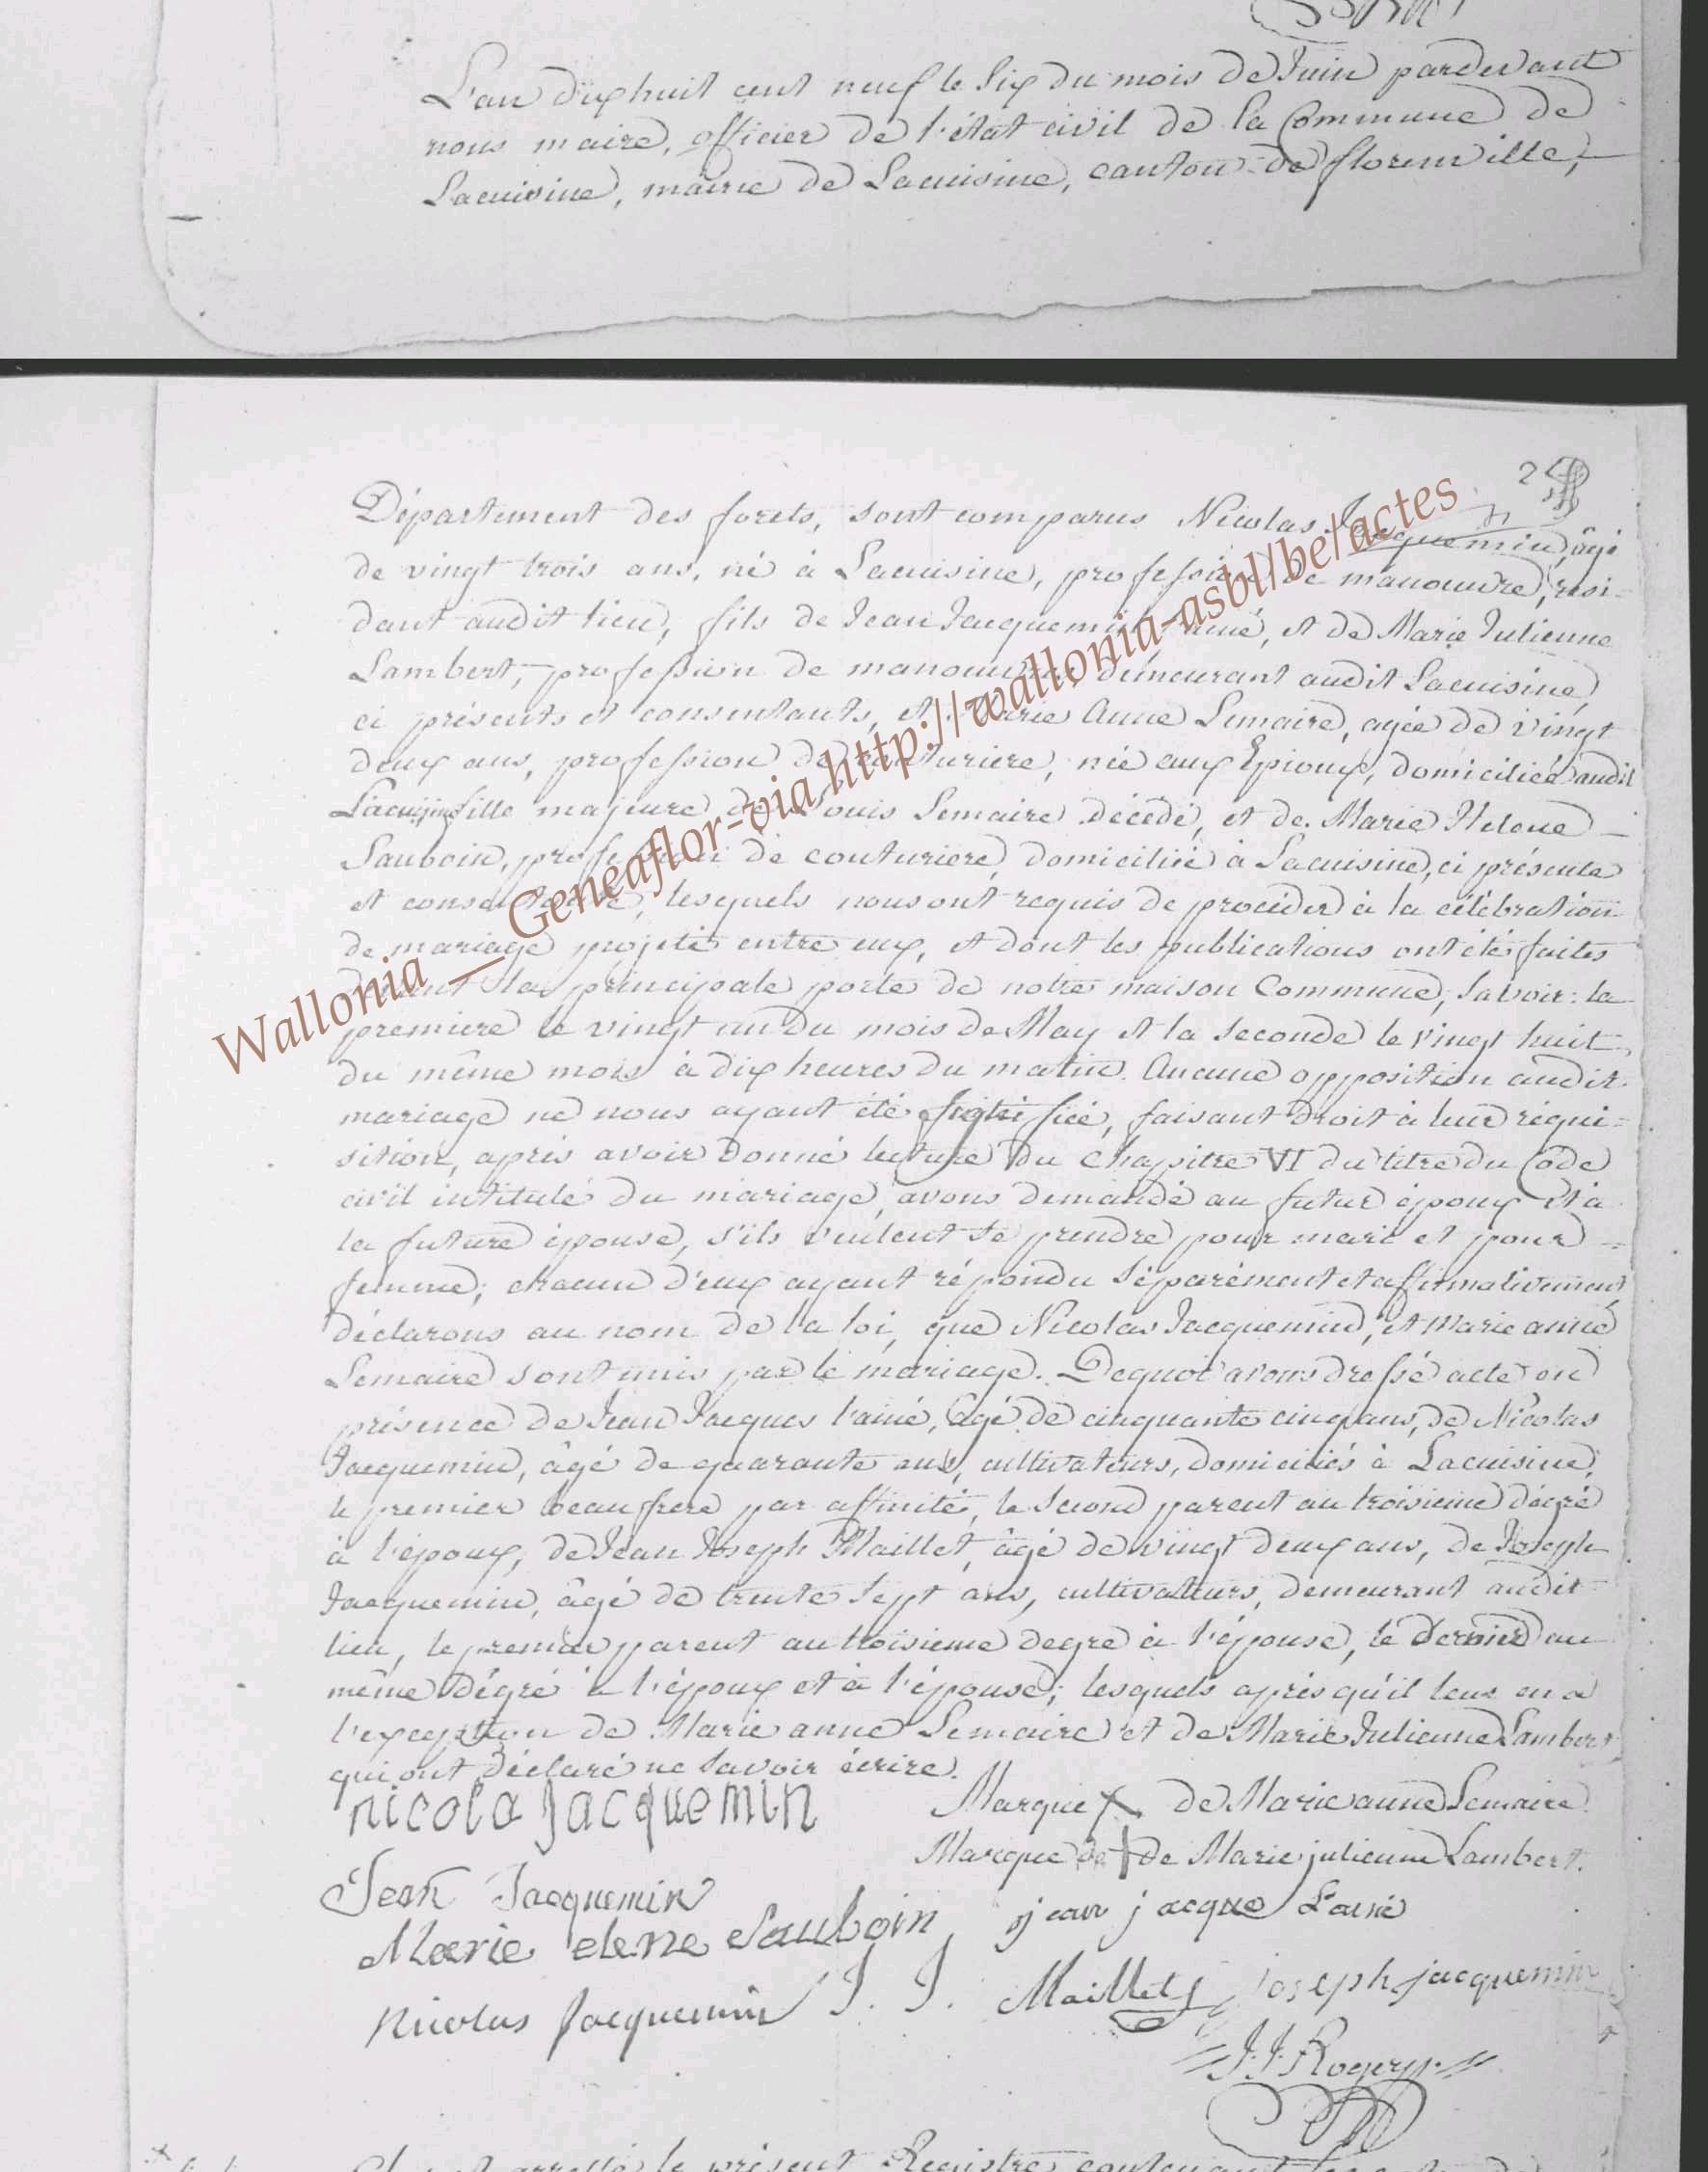 L'an dix huit cent neuf le six du mois de Juin pardevant
nous maire, officier de l'état civil de la Commune de
Lacuisine, mairie de Lacuisine, canton de florenville,
2
Département des forets, sont comparus Nicolas Jacquemin, âgé
de vingt trois ans, né à Lacuisine, profession de manouvre, rési-
dant audit lieu, fils de Jean Jacquemin, et de Marie Julienne
Lambert, profession de manouvres, demeurant audit Lacuisine,
ci présents et consentants, et Marie Anne Lemaire, agée de vingt
deux ans, profession de couturiere, née aux Epioux, domiciliée audit
Lacuisine fille majeure de Louis Lemaire décédé, et de Marie Helene
Sauboin, profession de couturiere, domiciliée à Lacuisine, ci présente
et consentante, lesquels nous ont requis de procéder à la célébration
de mariage projeté entre eux, et dont les publications ont été faites
devant la principale porte de notre maison Commune, savoir: la
premiere le vingt un du mois de May et la seconde le vingt huit
du même mois à dix heures du matin. Aucune opposition audit
mariage ne nous ayant été signifiée, faisant droit à leur réqui-
sition, après avoir donné lecture du Chapitre VI du titre du Code
civil intitulé du mariage, avons demandé au futur époux et à
la future épouse, s'ils veulent se prendre pour mari et pour
femme; chacun d'eux ayant répondu séparément et affirmativement
déclarons au nom de la loi, que Nicolas Jacquemin, et Marie anne
Lemaire sont unis par le mariage. Dequoi avons dressé acte en
présence de Jean Jacques l'ainé, âgé de cinquante cinq ans, de Nicolas
Jacquemin, âgé de quarante ans, cultivateurs, domiciliés à Lacuisine,
le premier beau frere par affinité, le second parent au troisieme dégré
à l'époux, de Jean Joseph Maillet, âgé de vingt deux ans, de Joseph
Jacquemin, âgé de trente sept ans, cultivateurs, demeurant audit
lieu, le premier parent au troisieme degré à l'épouse, le dernier au
même dégré à l'époux et à l'épouse; lesquels après qu'il leur en a
l'exception de Marie anne Lemaire et de Marie Julienne Lambert
qui ont déclaré ne savoir écrire.
nicola Jacquemin
Marque de Marie anne Lemaire
Marque de Marie julienne Lambert.
Jean Jacquemin
Marie elene Sauboin
jean jacque L'ainé
Nicolas Jacquemin
J. J. Maillet
joseph jacquemin
J. J. Rogery
le présent Registre
Wallonia _ Geneaflor-via http://wallonia-asbl/be/actes